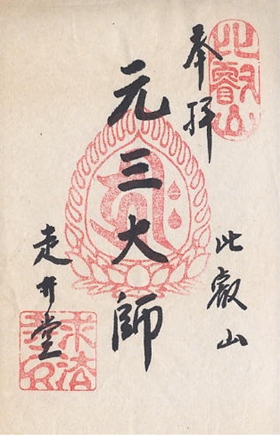 奉拝
比叡山
比叡山
元三大師
走井堂